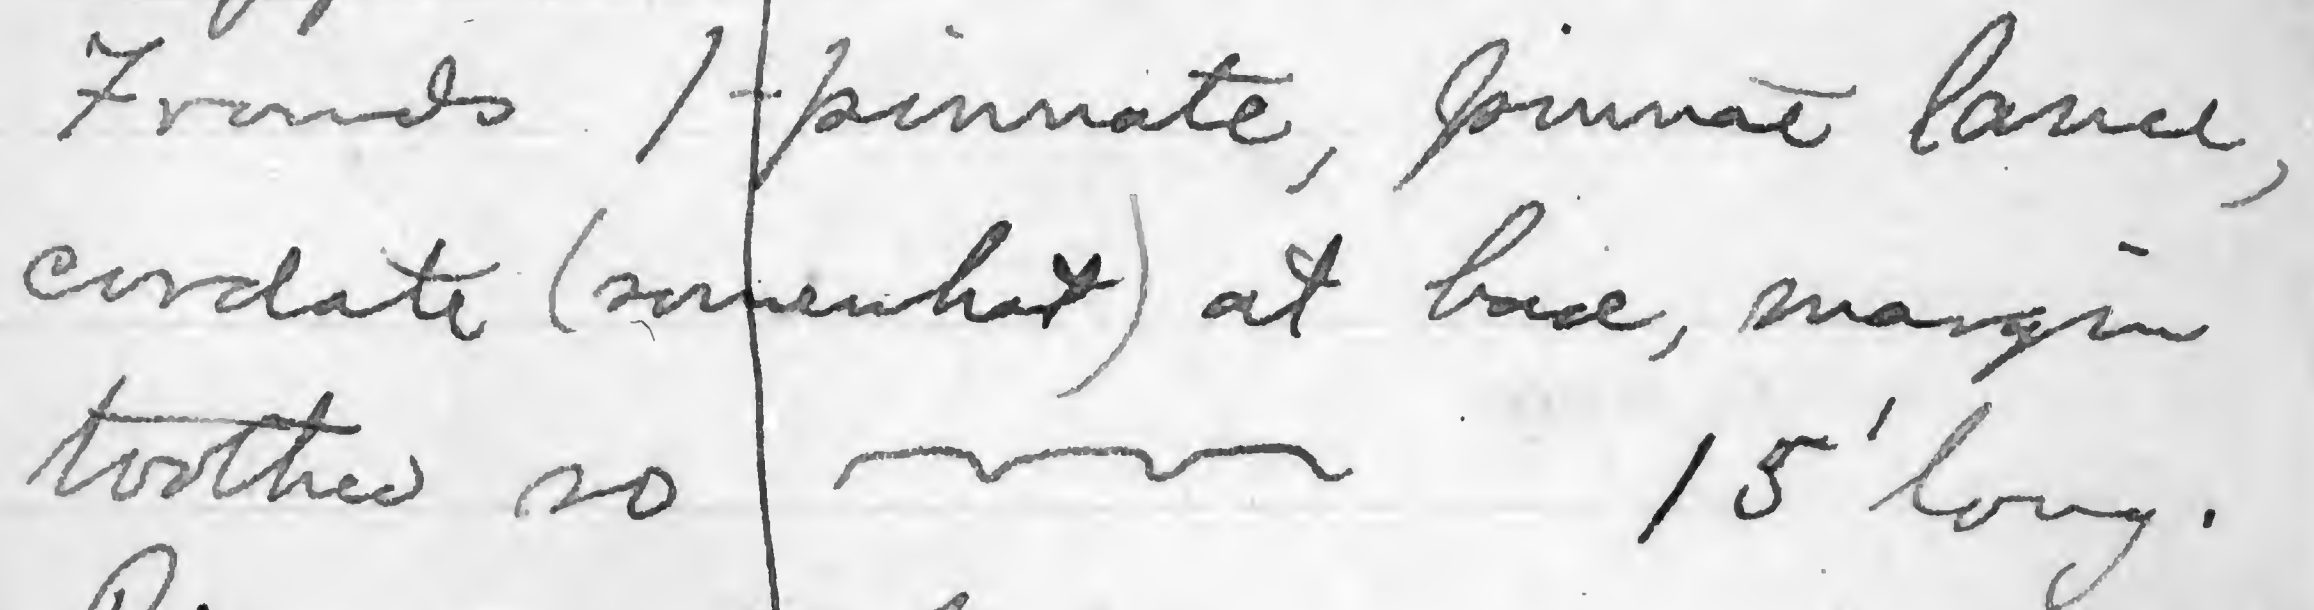 Fronds 1-pinnate, pinnae lance,
cordate (somewhat) at base, margin
toothed so 15' long.